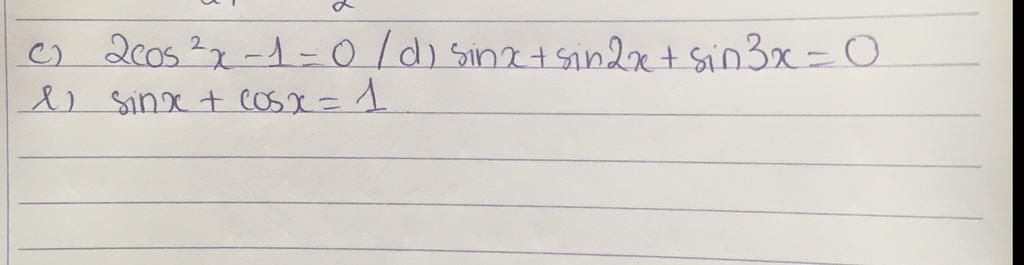 c) 2cos²x - 1 = 0 / d) sinx + sin2x + sin3x = 0
e) sinx + cosx = 1